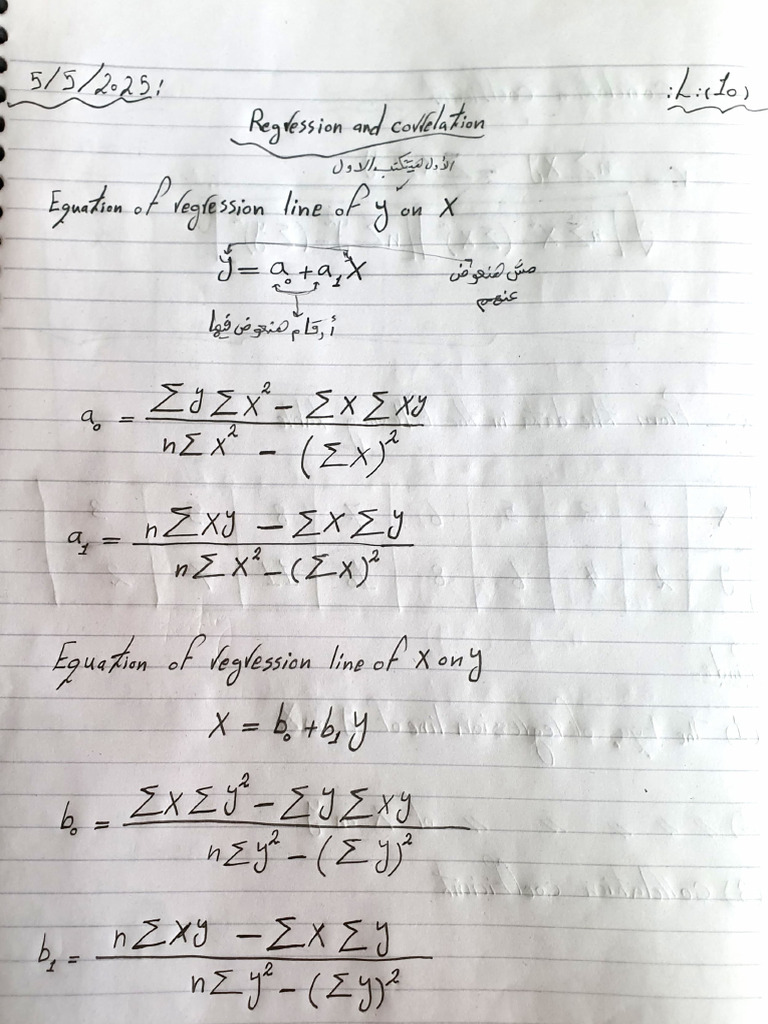 5/5/2025:
:L:(10)
Regression and correlation
الأول هيتكتب الاول
Equation of regression line of y on X
y = a₀ + a₁X
مش هنعوض
عنهم
أرقام هنعوض فيها
a₀ = (Σy Σx² − Σx Σxy) / (nΣx² − (Σx)²)
a₁ = (nΣxy − Σx Σy) / (nΣx² − (Σx)²)
Equation of regression line of X on y
X = b₀ + b₁y
b₀ = (Σx Σy² − Σy Σxy) / (nΣy² − (Σy)²)
b₁ = (nΣxy − Σx Σy) / (nΣy² − (Σy)²)